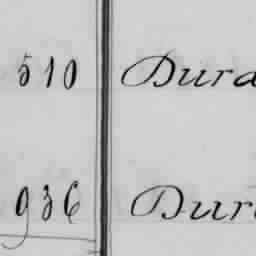 510 Dura
936 Dur